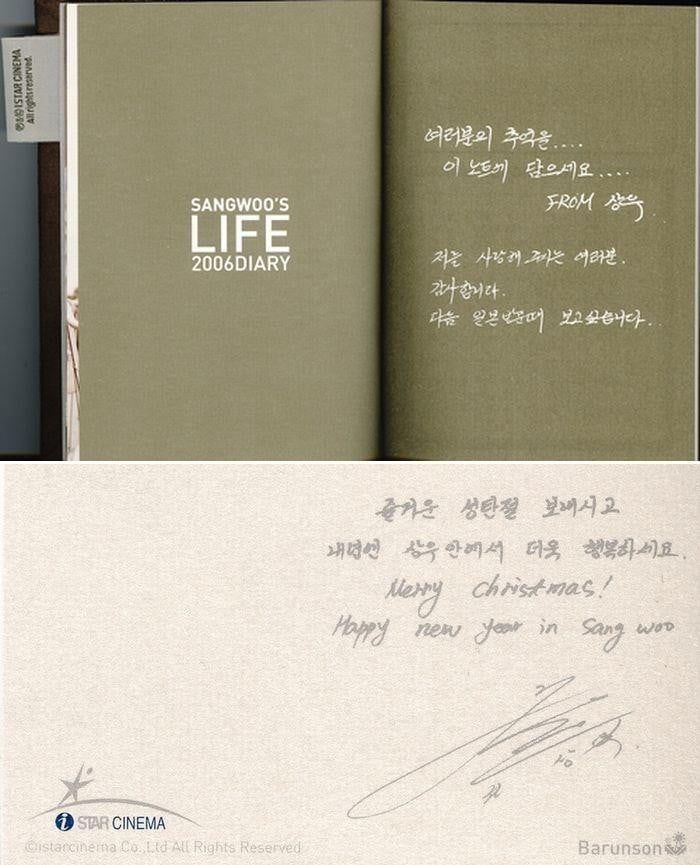 ℗&© ISTAR CINEMA
All rights reserved.
SANGWOO'S
LIFE
2006DIARY
여러분의 추억을....
이 노트에 담으세요....
FROM 상우..
저를 사랑해 주시는 여러분.
감사합니다.
다들 일본 방문때 보고싶습니다..
즐거운 성탄절 보내시고
내년엔 상우안에서 더욱 행복하세요.
Merry christmas!
Happy new year in Sang woo
i STAR CINEMA
©istarcinema Co.,Ltd All Rights Reserved
Barunson